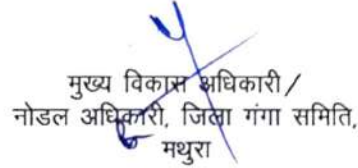 मुख्य विकास अधिकारी/
नोडल अधिकारी, जिला गंगा समिति,
मथुरा